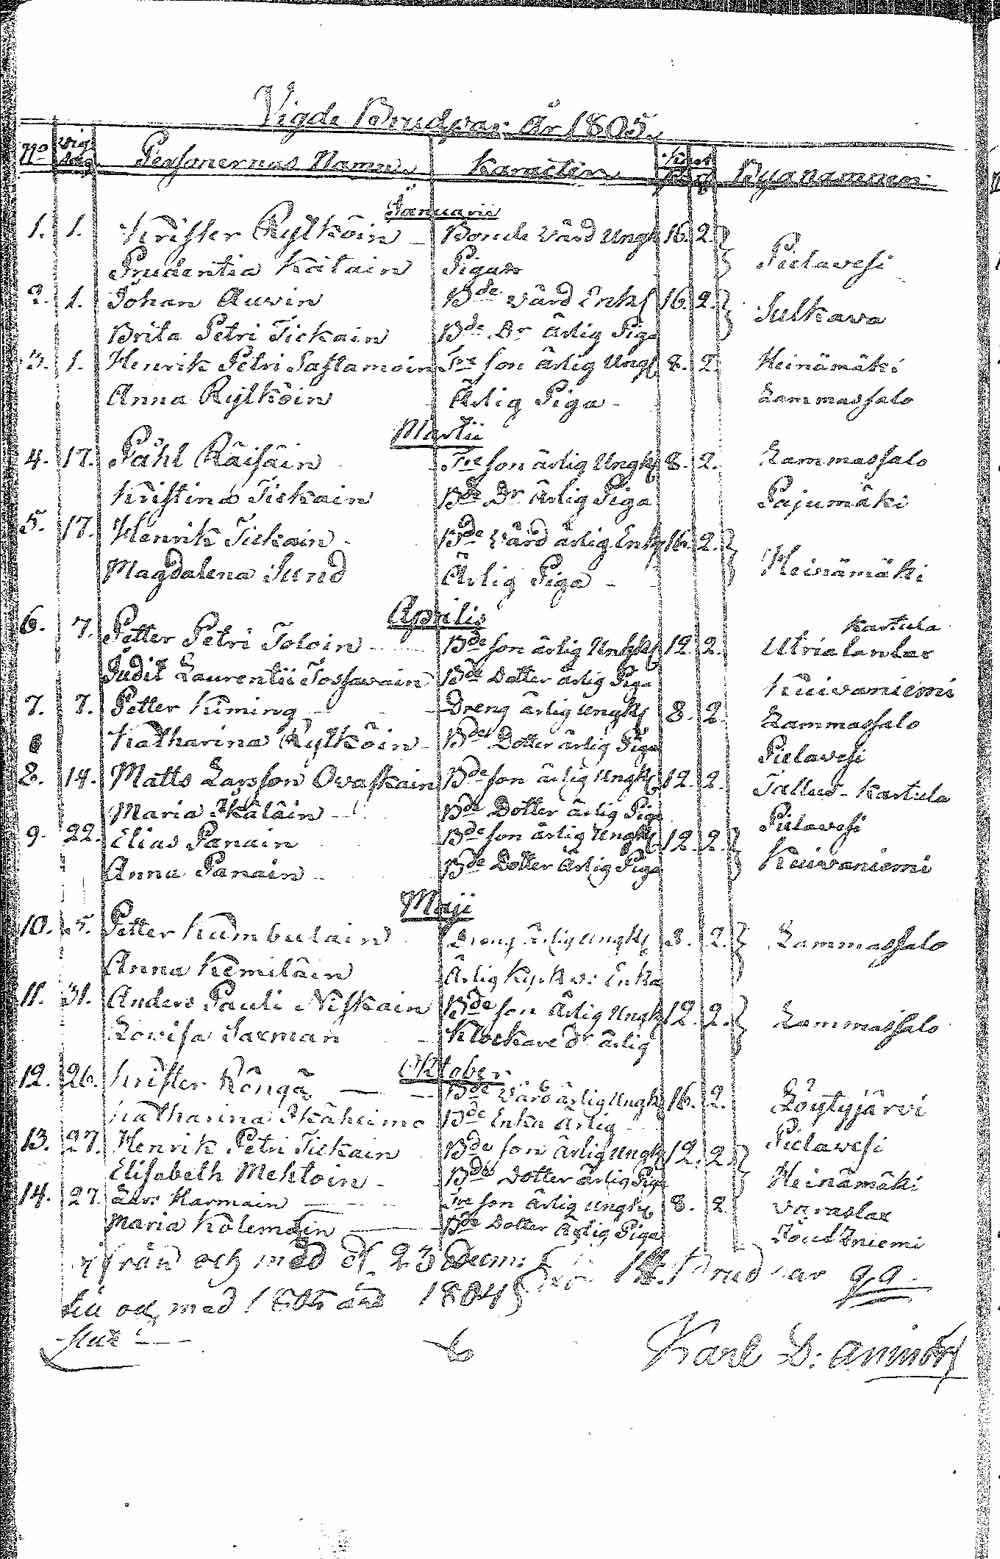 Vigde Brudpar År 1805.
No Vig dag Personernas Namn Karacteren Byanamnen
Januarii
1. 1. Krister Rylköin Bonde Värd Ungk 16. 2.
Prudentia Katain Pigan Pielavesi
2. 1. Johan Auvin Bde Värd Enkl 16. 2.
Brita Petri Tickain Bde Dr Ärlig Piga Sulkava
3. 1. Henrik Petri Sastamoin Tre son ärlig Ungk 8. 2. Heinämäki
Anna Rylköin Ärlig Piga Lammassalo
Martii
4. 17. Påhl Räisäin Tre son ärlig Ungk 8. 2. Lammassalo
Kristina Tickain Bde Dr Ärlig Piga Pajumäki
5. 17. Henrik Tickain Bde Värd ärlig Enkl 16. 2.
Magdalena Sund Ärlig Piga Heinämäki
Aprilis
6. 7. Petter Petri Toloin Bde son ärlig Ungk 12. 2. Utrialantax Kartula
Judit Laurentii Tossavain Bde Dotter ärlig Piga Kuivaniemi
7. 7. Petter Kiming Dreng ärlig Ungk 8. 2. Lammassalo
Katharina Rylköin Bdes Dotter ärlig Piga Pielavesi
8. 14. Matts Larsson Ovaskain Bde son ärlig Ungk 12. 2. Tallus - Kartula
Maria Ikäläin Bde Dotter ärlig Piga Pielavesi
9. 22. Elias Panain Bde son ärlig Ungk 12. 2.
Anna Panain Bde Dotter Ärlig Piga Kuivaniemi
Maji
10. 5. Petter Kumbulain Dreng Ärlig Ungk 8. 2. Lammassalo
Anna Kemiläin Ärlig Kyrk v: Enka
11. 31. Anders Pauli Niskain Bde son Ärlig Ungk 12. 2. Lammassalo
Lovisa Saxman Klockare dr ärlig
Oktober
12. 26. Krister Köngä Bde Värd ärlig Ungk 16. 2. Löytyjärvi
Katharina Ikäheimo Bde Enka Ärlig
13. 27. Henrik Petri Tickain Bde son Ärlig Ungk 12. 2. Pielavesi
Elisabeth Mehtoin Bde Dotter ärlig Piga Heinämäki
14. 27. Harmain Tre son ärlig Ungk 8. 2. Varaslax
Maria Kolemain Bde Dotter Ärlig Piga
från och med d 23 14. Brudpar
och med 1805 1804
Karl D: Aminoff